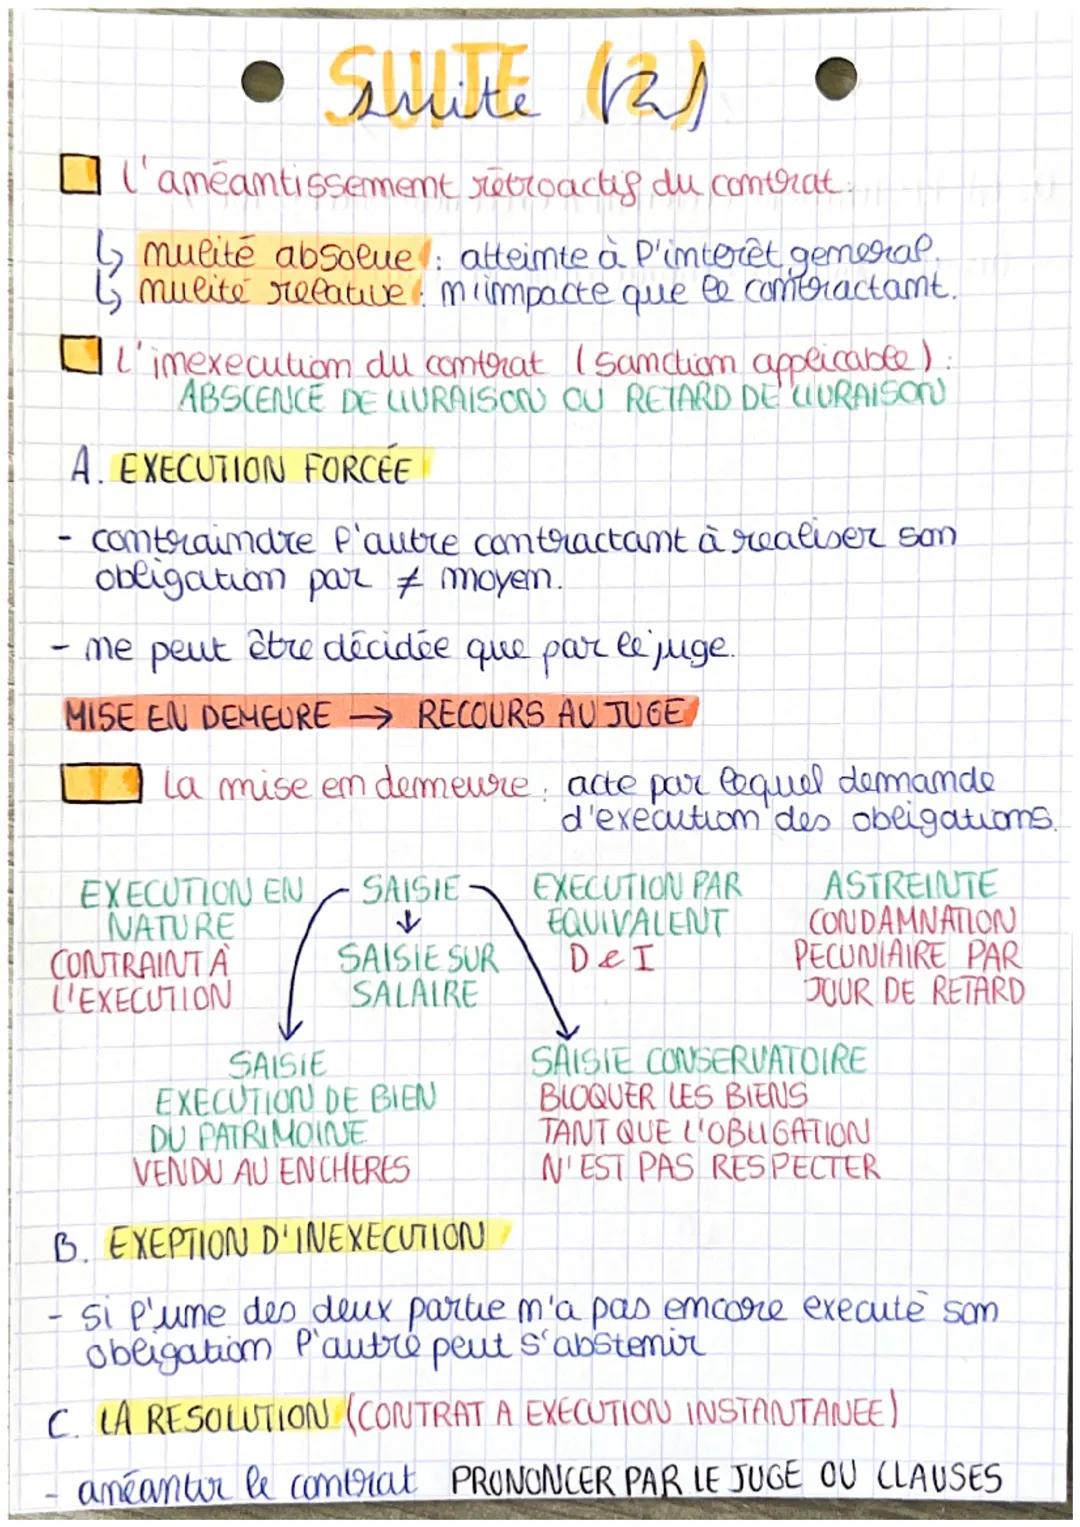 SUITE (2)
suite (2)
l'anéantissement rétroactif du contrat.
↳ nullité absolue : atteinte à l'interêt general.
↳ nullité relative : n'impacte que le contractant.
L'inexecution du contrat (sanction applicable) :
ABSCENCE DE LIVRAISON OU RETARD DE LIVRAISON
A. EXECUTION FORCÉE
- contraindre l'autre contractant à realiser son
obligation par ≠ moyen.
- ne peut être décidée que par le juge.
MISE EN DEMEURE → RECOURS AU JUGE
La mise en demeure : acte par lequel demande
d'execution des obligations.
EXECUTION EN
NATURE
CONTRAINT À
L'EXECUTION
SAISIE
↓
SAISIE SUR
SALAIRE
EXECUTION PAR
EQUIVALENT
D & I
ASTREINTE
CONDAMNATION
PECUNIAIRE PAR
JOUR DE RETARD
SAISIE
EXECUTION DE BIEN
DU PATRIMOINE
VENDU AU ENCHERES
SAISIE CONSERVATOIRE
BLOQUER LES BIENS
TANT QUE L'OBLIGATION
N'EST PAS RESPECTER
B. EXEPTION D'INEXECUTION
- si l'une des deux partie n'a pas encore executé son
obligation l'autre peut s'abstenir
C. LA RESOLUTION (CONTRAT A EXECUTION INSTANTANEE)
- anéantir le contrat PRONONCER PAR LE JUGE OU CLAUSES